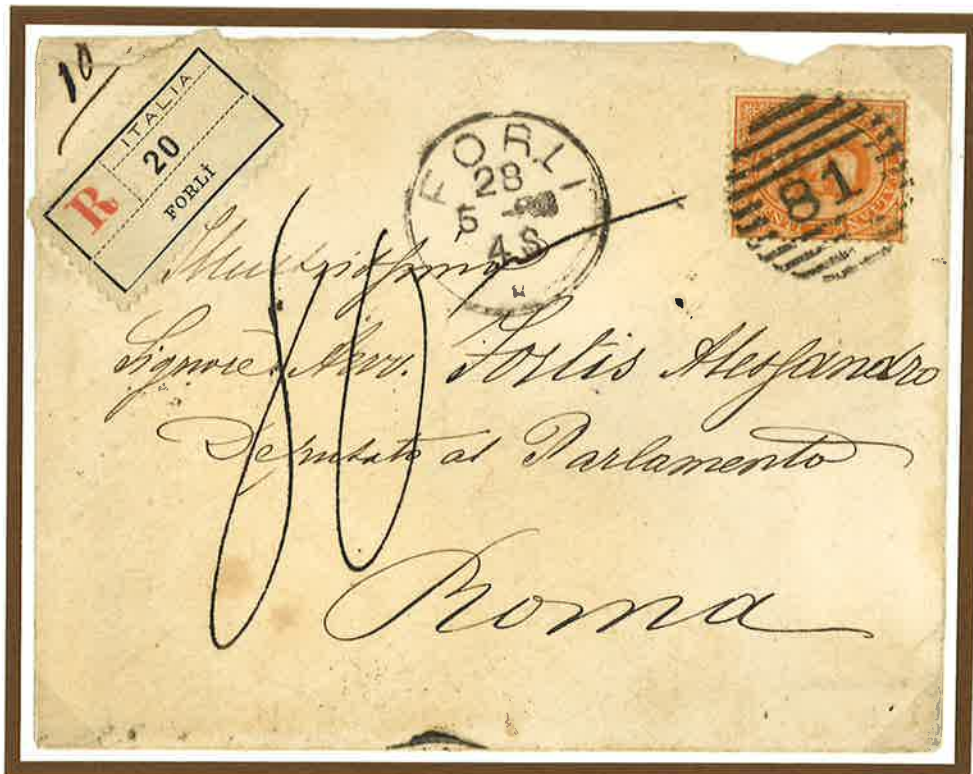 10
ITALIA
R 20
FORLÌ
FORLI
28
5
4 S
81
Illustrissimo
Signore Avv. Fortis Alessandro
Deputato al Parlamento
80
Roma